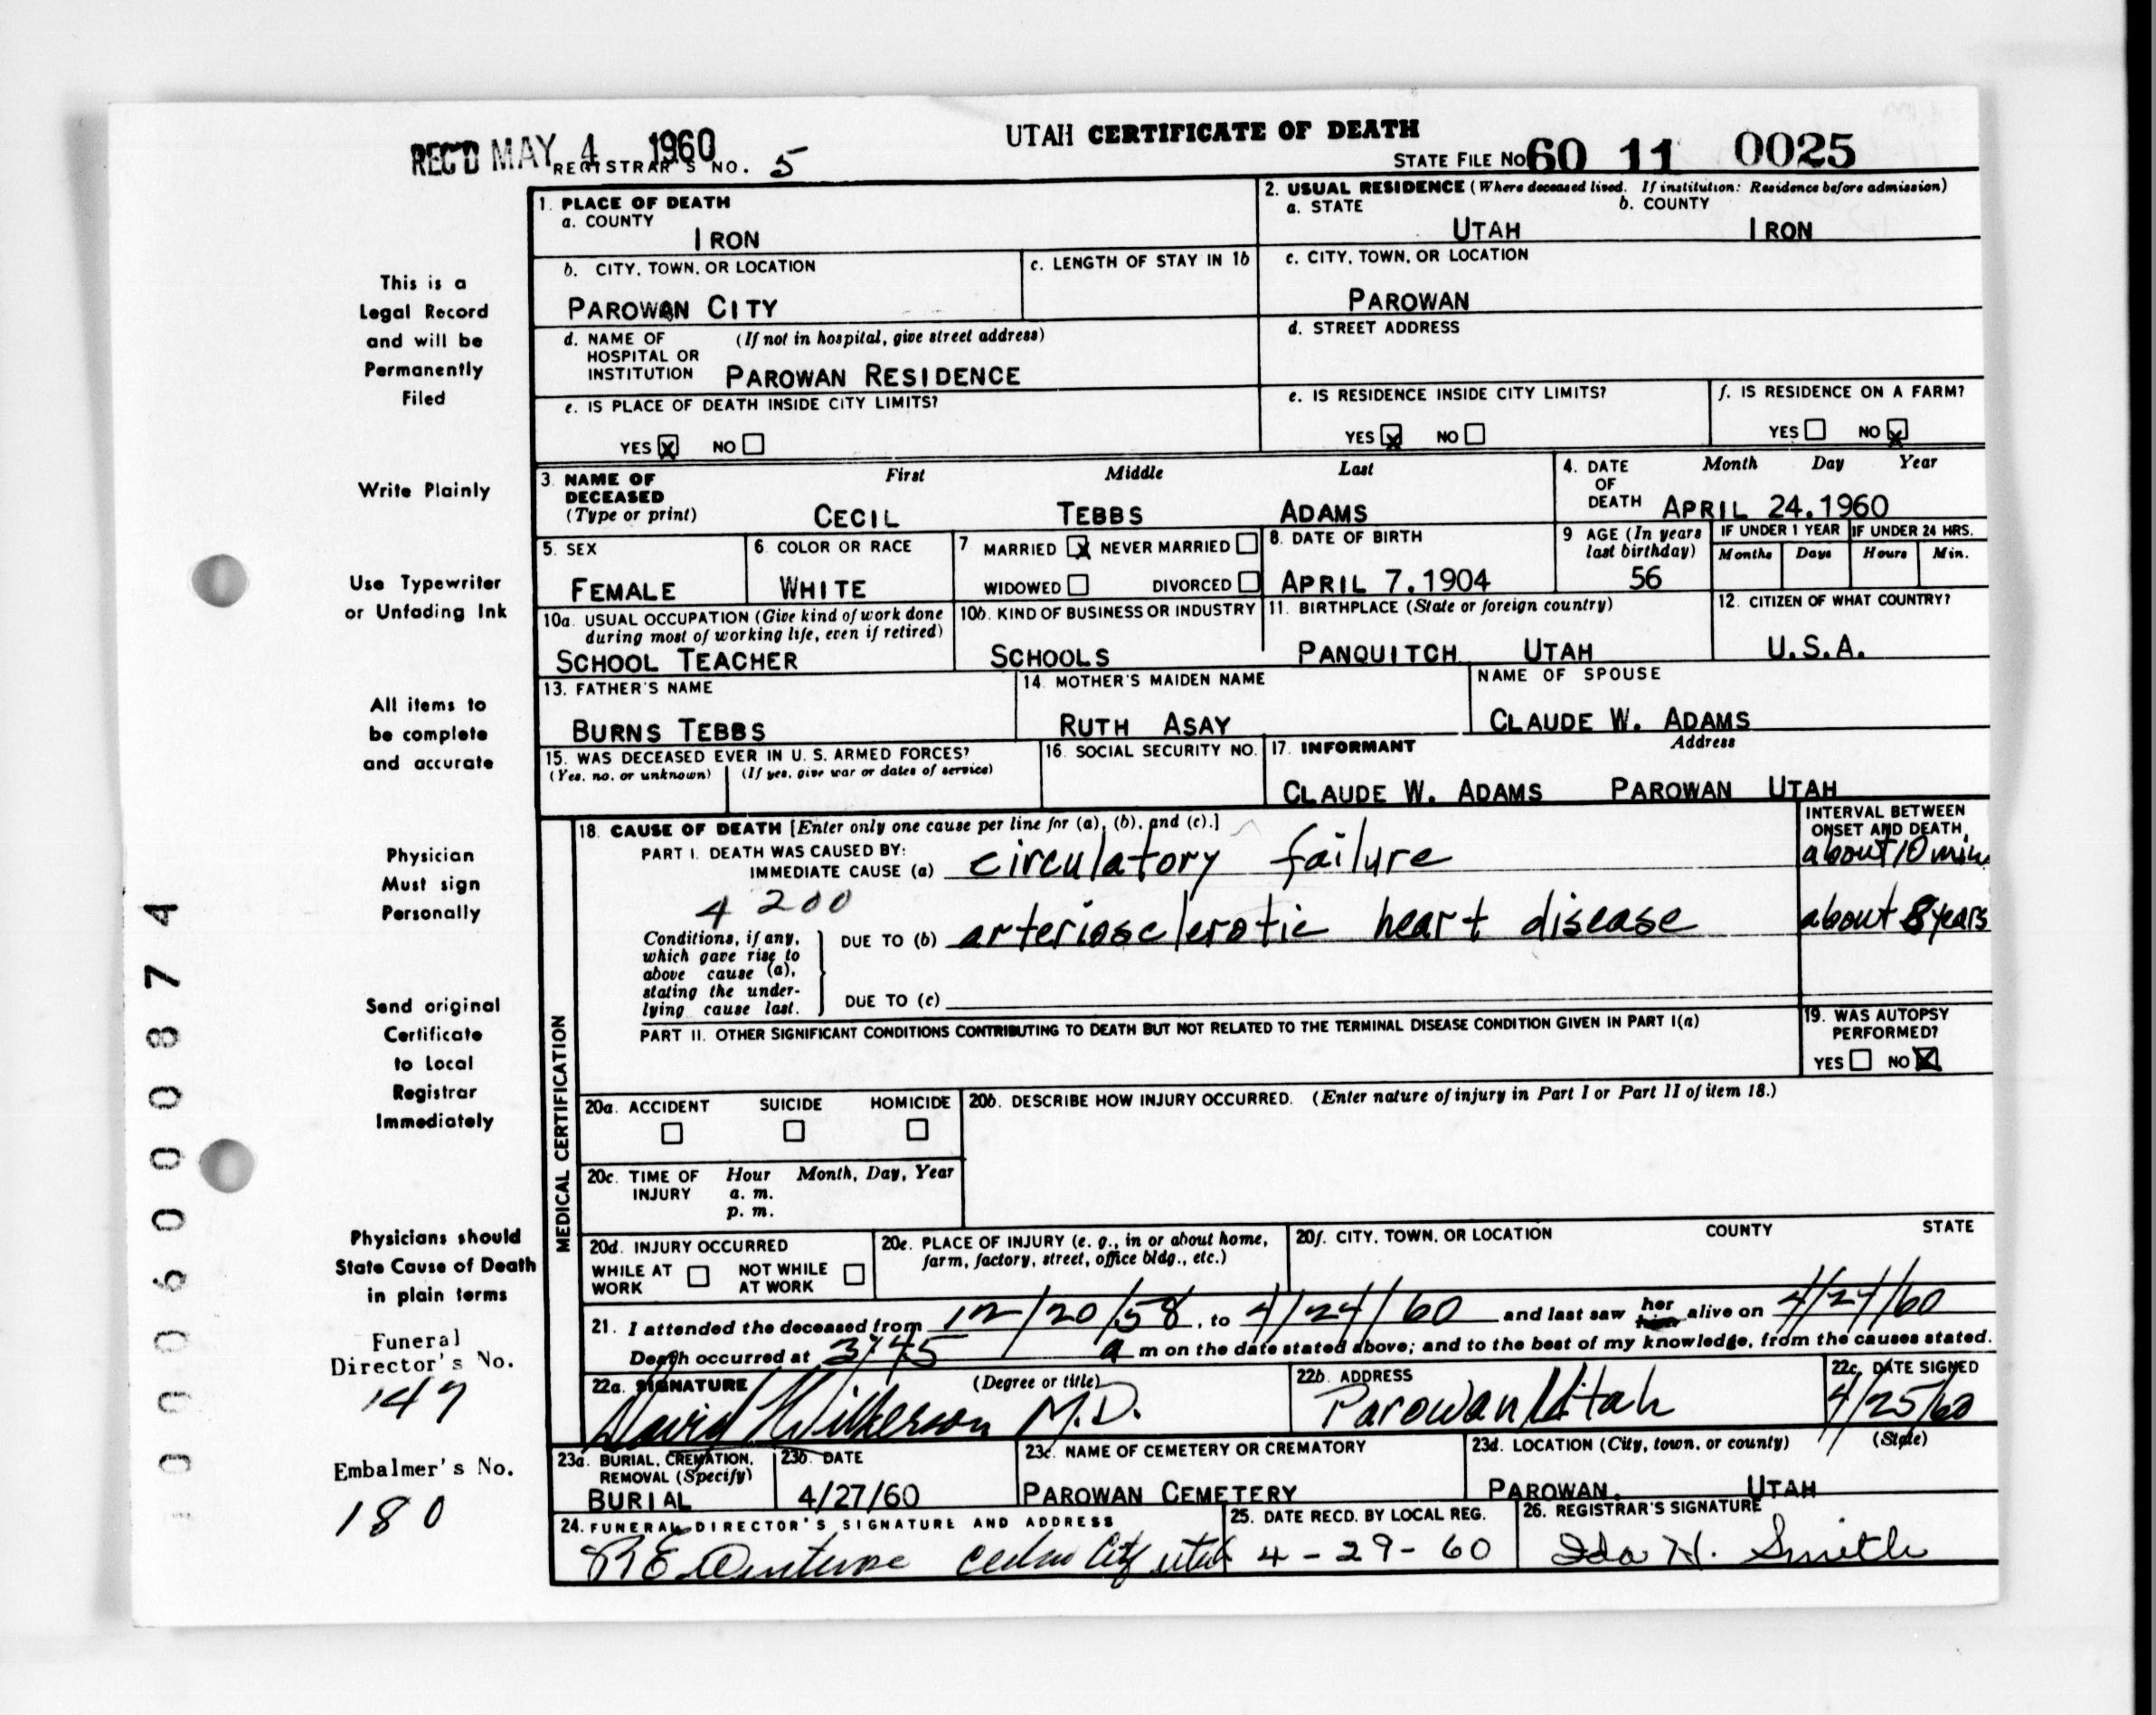 UTAH CERTIFICATE OF DEATH
REC'D MAY 4 1960
REGISTRAR'S NO. 5
STATE FILE NO. 60 11 0025
1. PLACE OF DEATH
a. COUNTY
IRON
2. USUAL RESIDENCE (Where deceased lived. If institution: Residence before admission)
a. STATE b. COUNTY
UTAH IRON
b. CITY, TOWN, OR LOCATION
PAROWAN CITY
c. LENGTH OF STAY IN 1b
c. CITY, TOWN, OR LOCATION
PAROWAN
d. NAME OF (If not in hospital, give street address)
HOSPITAL OR
INSTITUTION PAROWAN RESIDENCE
d. STREET ADDRESS
e. IS PLACE OF DEATH INSIDE CITY LIMITS?
YES X NO
e. IS RESIDENCE INSIDE CITY LIMITS?
YES X NO
f. IS RESIDENCE ON A FARM?
YES NO X
3. NAME OF First Middle Last
DECEASED
(Type or print) CECIL TEBBS ADAMS
4. DATE Month Day Year
OF
DEATH APRIL 24.1960
5. SEX
FEMALE
6. COLOR OR RACE
WHITE
7 MARRIED X NEVER MARRIED
WIDOWED DIVORCED
8. DATE OF BIRTH
APRIL 7.1904
9 AGE (In years
last birthday)
56
IF UNDER 1 YEAR IF UNDER 24 HRS.
Months Days Hours Min.
10a. USUAL OCCUPATION (Give kind of work done
during most of working life, even if retired)
SCHOOL TEACHER
10b. KIND OF BUSINESS OR INDUSTRY
SCHOOLS
11. BIRTHPLACE (State or foreign country)
PANQUITCH UTAH
12. CITIZEN OF WHAT COUNTRY?
U.S.A.
13. FATHER'S NAME
BURNS TEBBS
14. MOTHER'S MAIDEN NAME
RUTH ASAY
NAME OF SPOUSE
CLAUDE W. ADAMS
15. WAS DECEASED EVER IN U. S. ARMED FORCES?
(Yes, no, or unknown) (If yes, give war or dates of service)
16. SOCIAL SECURITY NO.
17. INFORMANT Address
CLAUDE W. ADAMS PAROWAN UTAH
MEDICAL CERTIFICATION
18. CAUSE OF DEATH [Enter only one cause per line for (a), (b), and (c).]
PART I. DEATH WAS CAUSED BY:
IMMEDIATE CAUSE (a) circulatory failure
INTERVAL BETWEEN
ONSET AND DEATH
about 10 min.
4200
Conditions, if any,
which gave rise to
above cause (a),
stating the under-
lying cause last.
DUE TO (b) arteriosclerotic heart disease
about 8 years
DUE TO (c)
PART II. OTHER SIGNIFICANT CONDITIONS CONTRIBUTING TO DEATH BUT NOT RELATED TO THE TERMINAL DISEASE CONDITION GIVEN IN PART I(a)
19. WAS AUTOPSY
PERFORMED?
YES NO X
20a. ACCIDENT SUICIDE HOMICIDE
20b. DESCRIBE HOW INJURY OCCURRED. (Enter nature of injury in Part I or Part II of item 18.)
20c. TIME OF Hour Month, Day, Year
INJURY a. m.
p. m.
20d. INJURY OCCURRED
WHILE AT NOT WHILE
WORK AT WORK
20e. PLACE OF INJURY (e. g., in or about home,
farm, factory, street, office bldg., etc.)
20f. CITY, TOWN, OR LOCATION COUNTY STATE
21. I attended the deceased from 12/20/58, to 4/24/60 and last saw her him alive on 4/24/60
Death occurred at 3:45 a m on the date stated above; and to the best of my knowledge, from the causes stated.
22a. SIGNATURE (Degree or title)
David Wilkerson M.D.
22b. ADDRESS
Parowan Utah
22c. DATE SIGNED
4/25/60
23a. BURIAL, CREMATION,
REMOVAL (Specify)
BURIAL
23b. DATE
4/27/60
23c. NAME OF CEMETERY OR CREMATORY
PAROWAN CEMETERY
23d. LOCATION (City, town, or county) (State)
PAROWAN. UTAH
24. FUNERAL DIRECTOR'S SIGNATURE AND ADDRESS
Cedar City Utah
25. DATE RECD. BY LOCAL REG.
4-29-60
26. REGISTRAR'S SIGNATURE
Ida H. Smith
This is a
Legal Record
and will be
Permanently
Filed
Write Plainly
Use Typewriter
or Unfading Ink
All items to
be complete
and accurate
Physician
Must sign
Personally
Send original
Certificate
to Local
Registrar
Immediately
Physicians should
State Cause of Death
in plain terms
Funeral
Director's No.
147
Embalmer's No.
180
0006000874